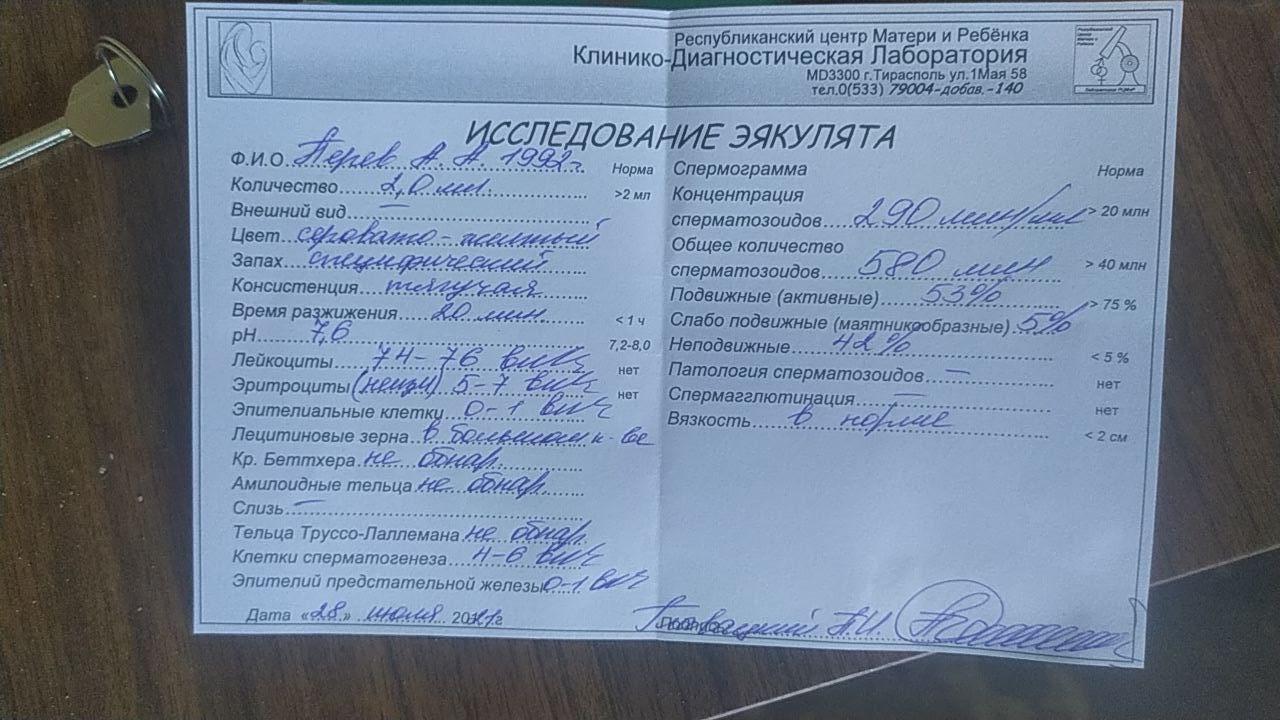 Республиканский центр Матери и Ребёнка
Клинико-Диагностическая Лаборатория
MD3300 г.Тирасполь ул.1Мая 58
тел.0(533) 79004-добав.-140
Республиканский
Центр
Матери и
Ребёнка
Лаборатория РЦМиР
ИССЛЕДОВАНИЕ ЭЯКУЛЯТА
Ф.И.О. А. А. 1992г. Норма
Количество 2,0 мл. >2 мл
Внешний вид –
Цвет серовато-желтый
Запах специфический
Консистенция тягучая
Время разжижения 20 мин. < 1 ч
pH 7,6 7,2-8,0
Лейкоциты 74-76 в п/з нет
Эритроциты (неизм) 5-7 в п/з нет
Эпителиальные клетки 0-1 в п/з
Лецитиновые зерна в большом к-ве
Кр. Беттхера не обнар.
Амилоидные тельца не обнар.
Слизь –
Тельца Труссо-Лаллемана не обнар.
Клетки сперматогенеза 4-6 в п/з
Эпителий предстательной железы 0-1 в п/з
Дата «28» июля 2021г
Спермограмма Норма
Концентрация
сперматозоидов 290 млн/мл > 20 млн
Общее количество
сперматозоидов 580 млн > 40 млн
Подвижные (активные) 53% > 75 %
Слабо подвижные (маятникообразные) 5%
Неподвижные 42% < 5 %
Патология сперматозоидов – нет
Спермагглютинация – нет
Вязкость в норме < 2 см